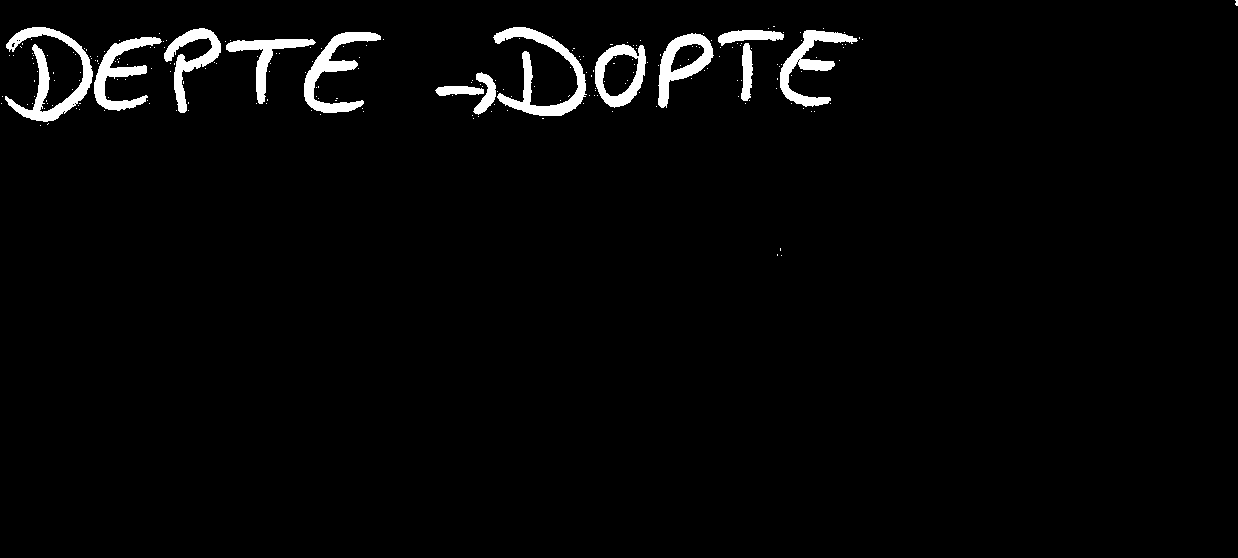 DEPTE → DOPTE